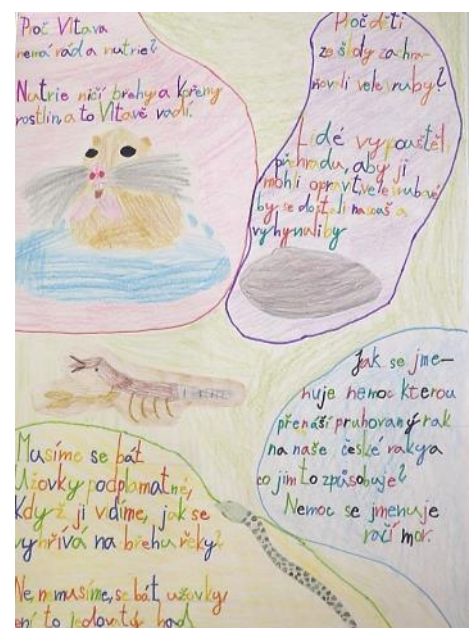 Proč Vltava
nemá ráda nutrie?
Nutrie ničí břehy a kořeny
rostlin a to Vltavě vadí.
Proč děti
ze školy zachra-
ňovali velevruby?
Lidé vypouštěli
přehradu, aby ji
mohli opravit, velevrubové
by se dostali na souš a
vyhynuli by
Jak se jme-
nuje nemoc kterou
přenáší pruhovaný rak
na naše české raky a
co jim to způsobuje?
Nemoc se jmenuje
račí mor.
Musíme se bát
Užovky podplamatné,
Když ji vidíme, jak se
vyhřívá na břehu řeky?
Ne, nemusíme, se bát užovky
ení to jedovatý had